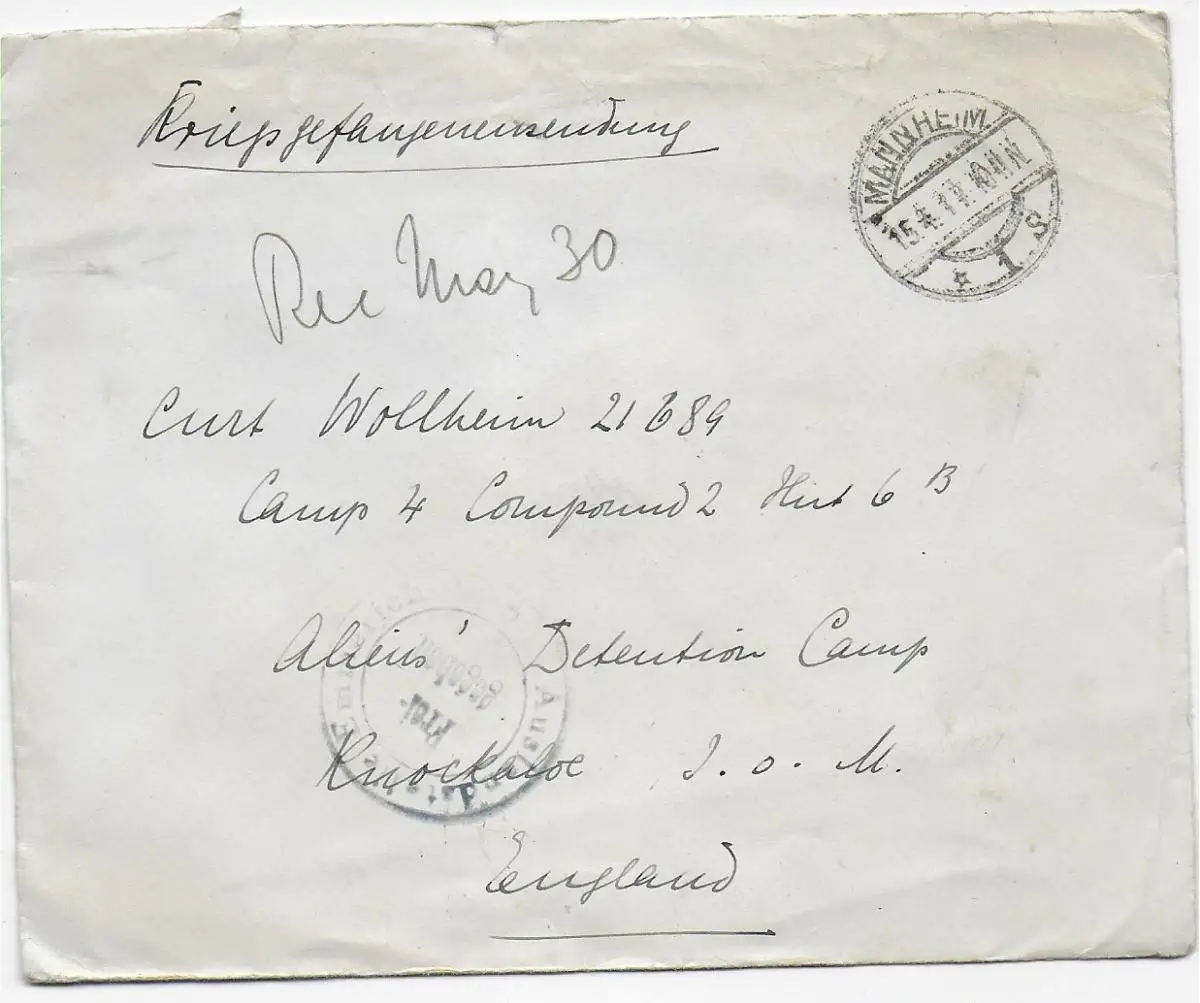 Kriegsgefangenensendung
MANNHEIM
15.4.17.
* 1 S
Rec May 30
Curt Wollheim 21689
Camp 4 Compound 2 Hut 6 B
Aliens' Detention Camp
Knockaloe I. o. M.
England
Emmerich
Frei-
gegeben